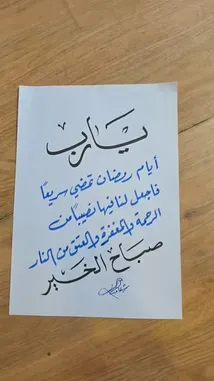 يارب
أيام رمضان تمضي سريعاً
فاجعل لنا فيها نصيباً من
الرحمة والمغفرة والعتق من النار
صباح الخير